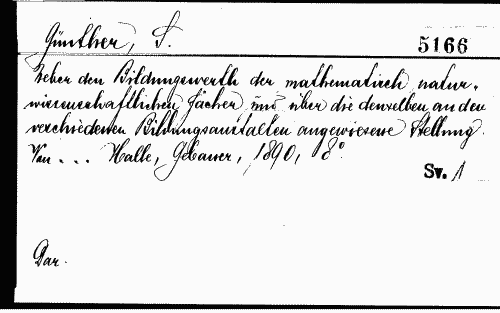 Günther, S.
5166
Ueber den Bildungswerth der mathematisch natur-
wissenschaftlichen Fächer und über die denselben an den
verschiedenen Bildungsanstalten angewiesene Stellung.
Von ... Halle, Gebauer, 1890, 8°.
Sv. 1
Dar.